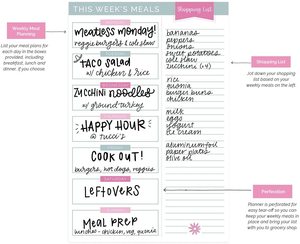 THIS WEEK'S MEALS
Shopping List
Weekly Meal
Planning
List your meal plans
for each day in the boxes
provided, including
breakfast, lunch and
dinner if you choose.
meatless monday!
veggie burgers & cole slaw
TACO SALAD
w/ chicken & rice
ZUCCHINI NOODLES
w/ ground turkey
HAPPY HOUR
@ tucci's
COOK OUT!
burgers, hot dogs, veggies
SATURDAY
LEFTOVERS
MEAL PREP
lunches - chicken, veg, quinoa
bananas
peppers
onions
sweet potatoes
cole slaw
zucchini (x4)
rice
quinoa
burger buns
chicken
milk
eggs
yogurt
ice cream
aluminum foil
paper plates
olive oil
Shopping List
Jot down your shopping
list based on your
weekly meals on the left.
Perforation
Planner is perforated for
easy tear-off so you can
keep your weekly meals in
place and bring your list
with you to grocery shop.